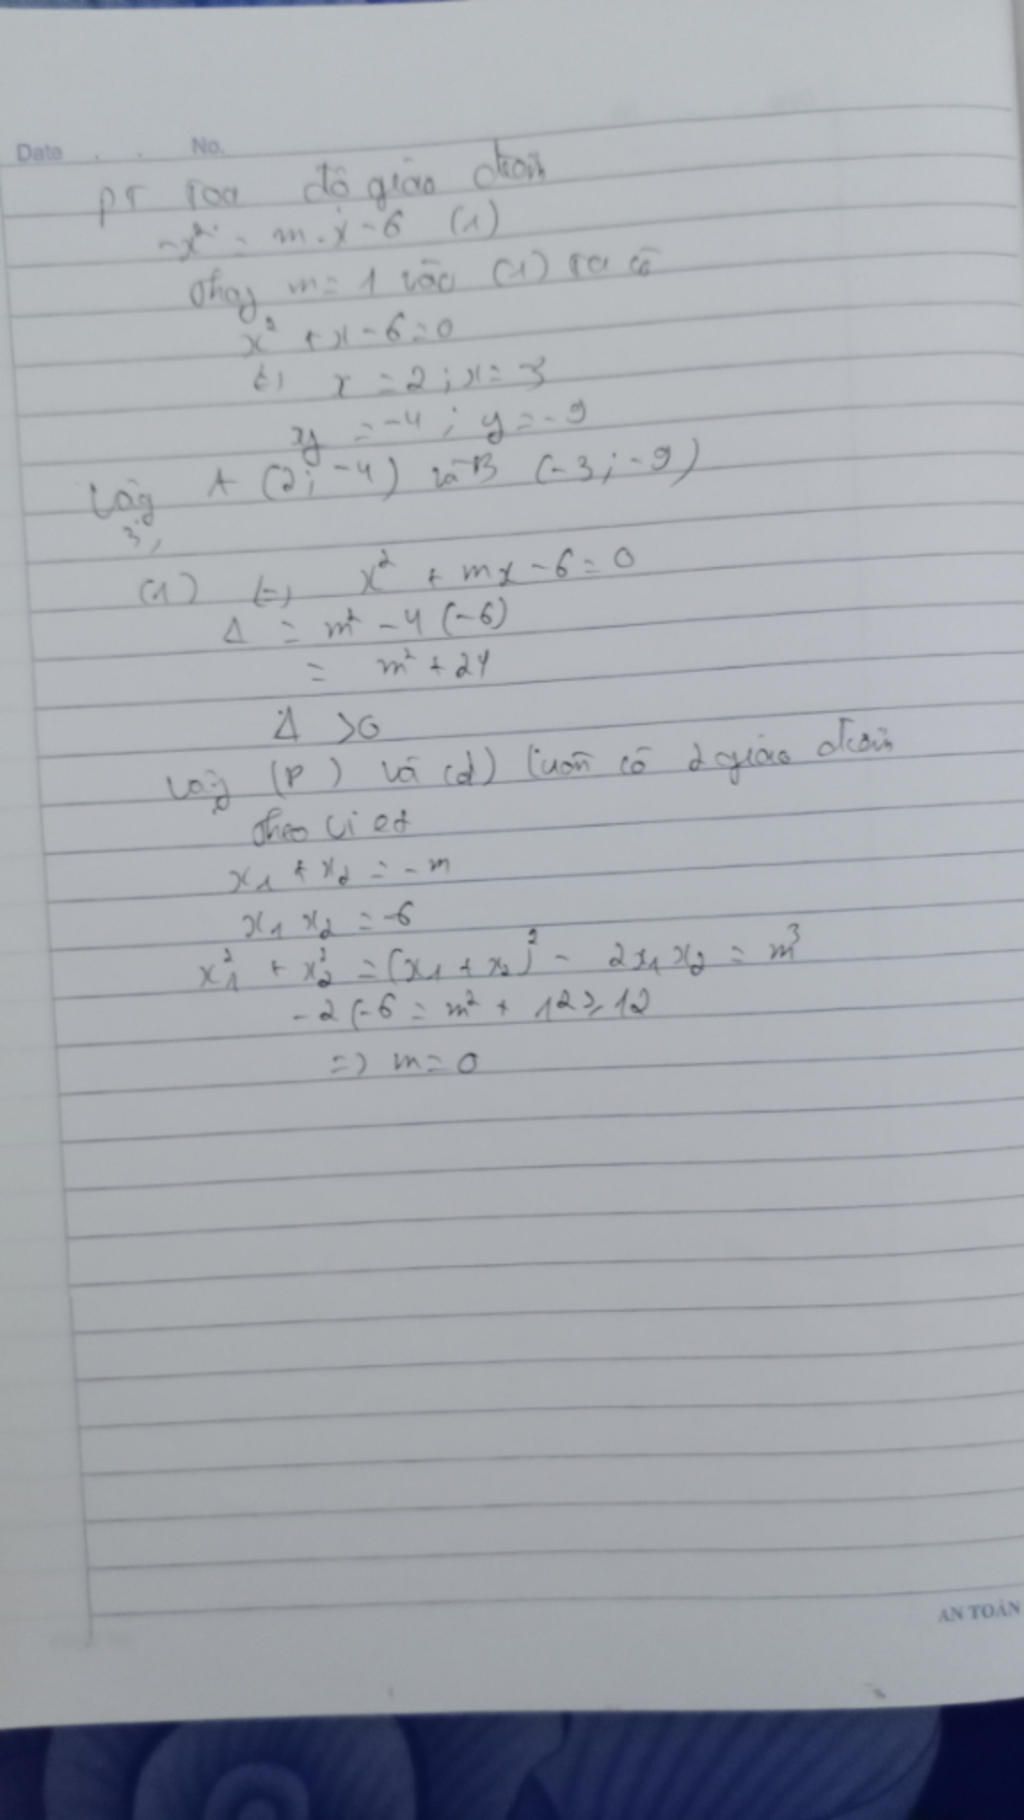 Date . . No.
PT Toạ độ giao điểm
-x² = m.x-6 (1)
Thay m=1 vào (1) ta có
x² + x - 6 = 0
(=) x = 2 ; x = -3
y = -4 ; y = -9
Vậy A (2; -4) và B (-3; -9)
3,
(1) (=) x² + mx - 6 = 0
Δ = m² - 4 (-6)
= m² + 24
Δ > 0
Vậy (P) và (d) luôn có 2 giao điểm
Theo Vi et
x₁ + x₂ = -m
x₁ x₂ = -6
x₁² + x₂² = (x₁ + x₂)² - 2x₁x₂ = m³
-2(-6 = m² + 12 ≥ 12
=) m = 0
AN TOÁN